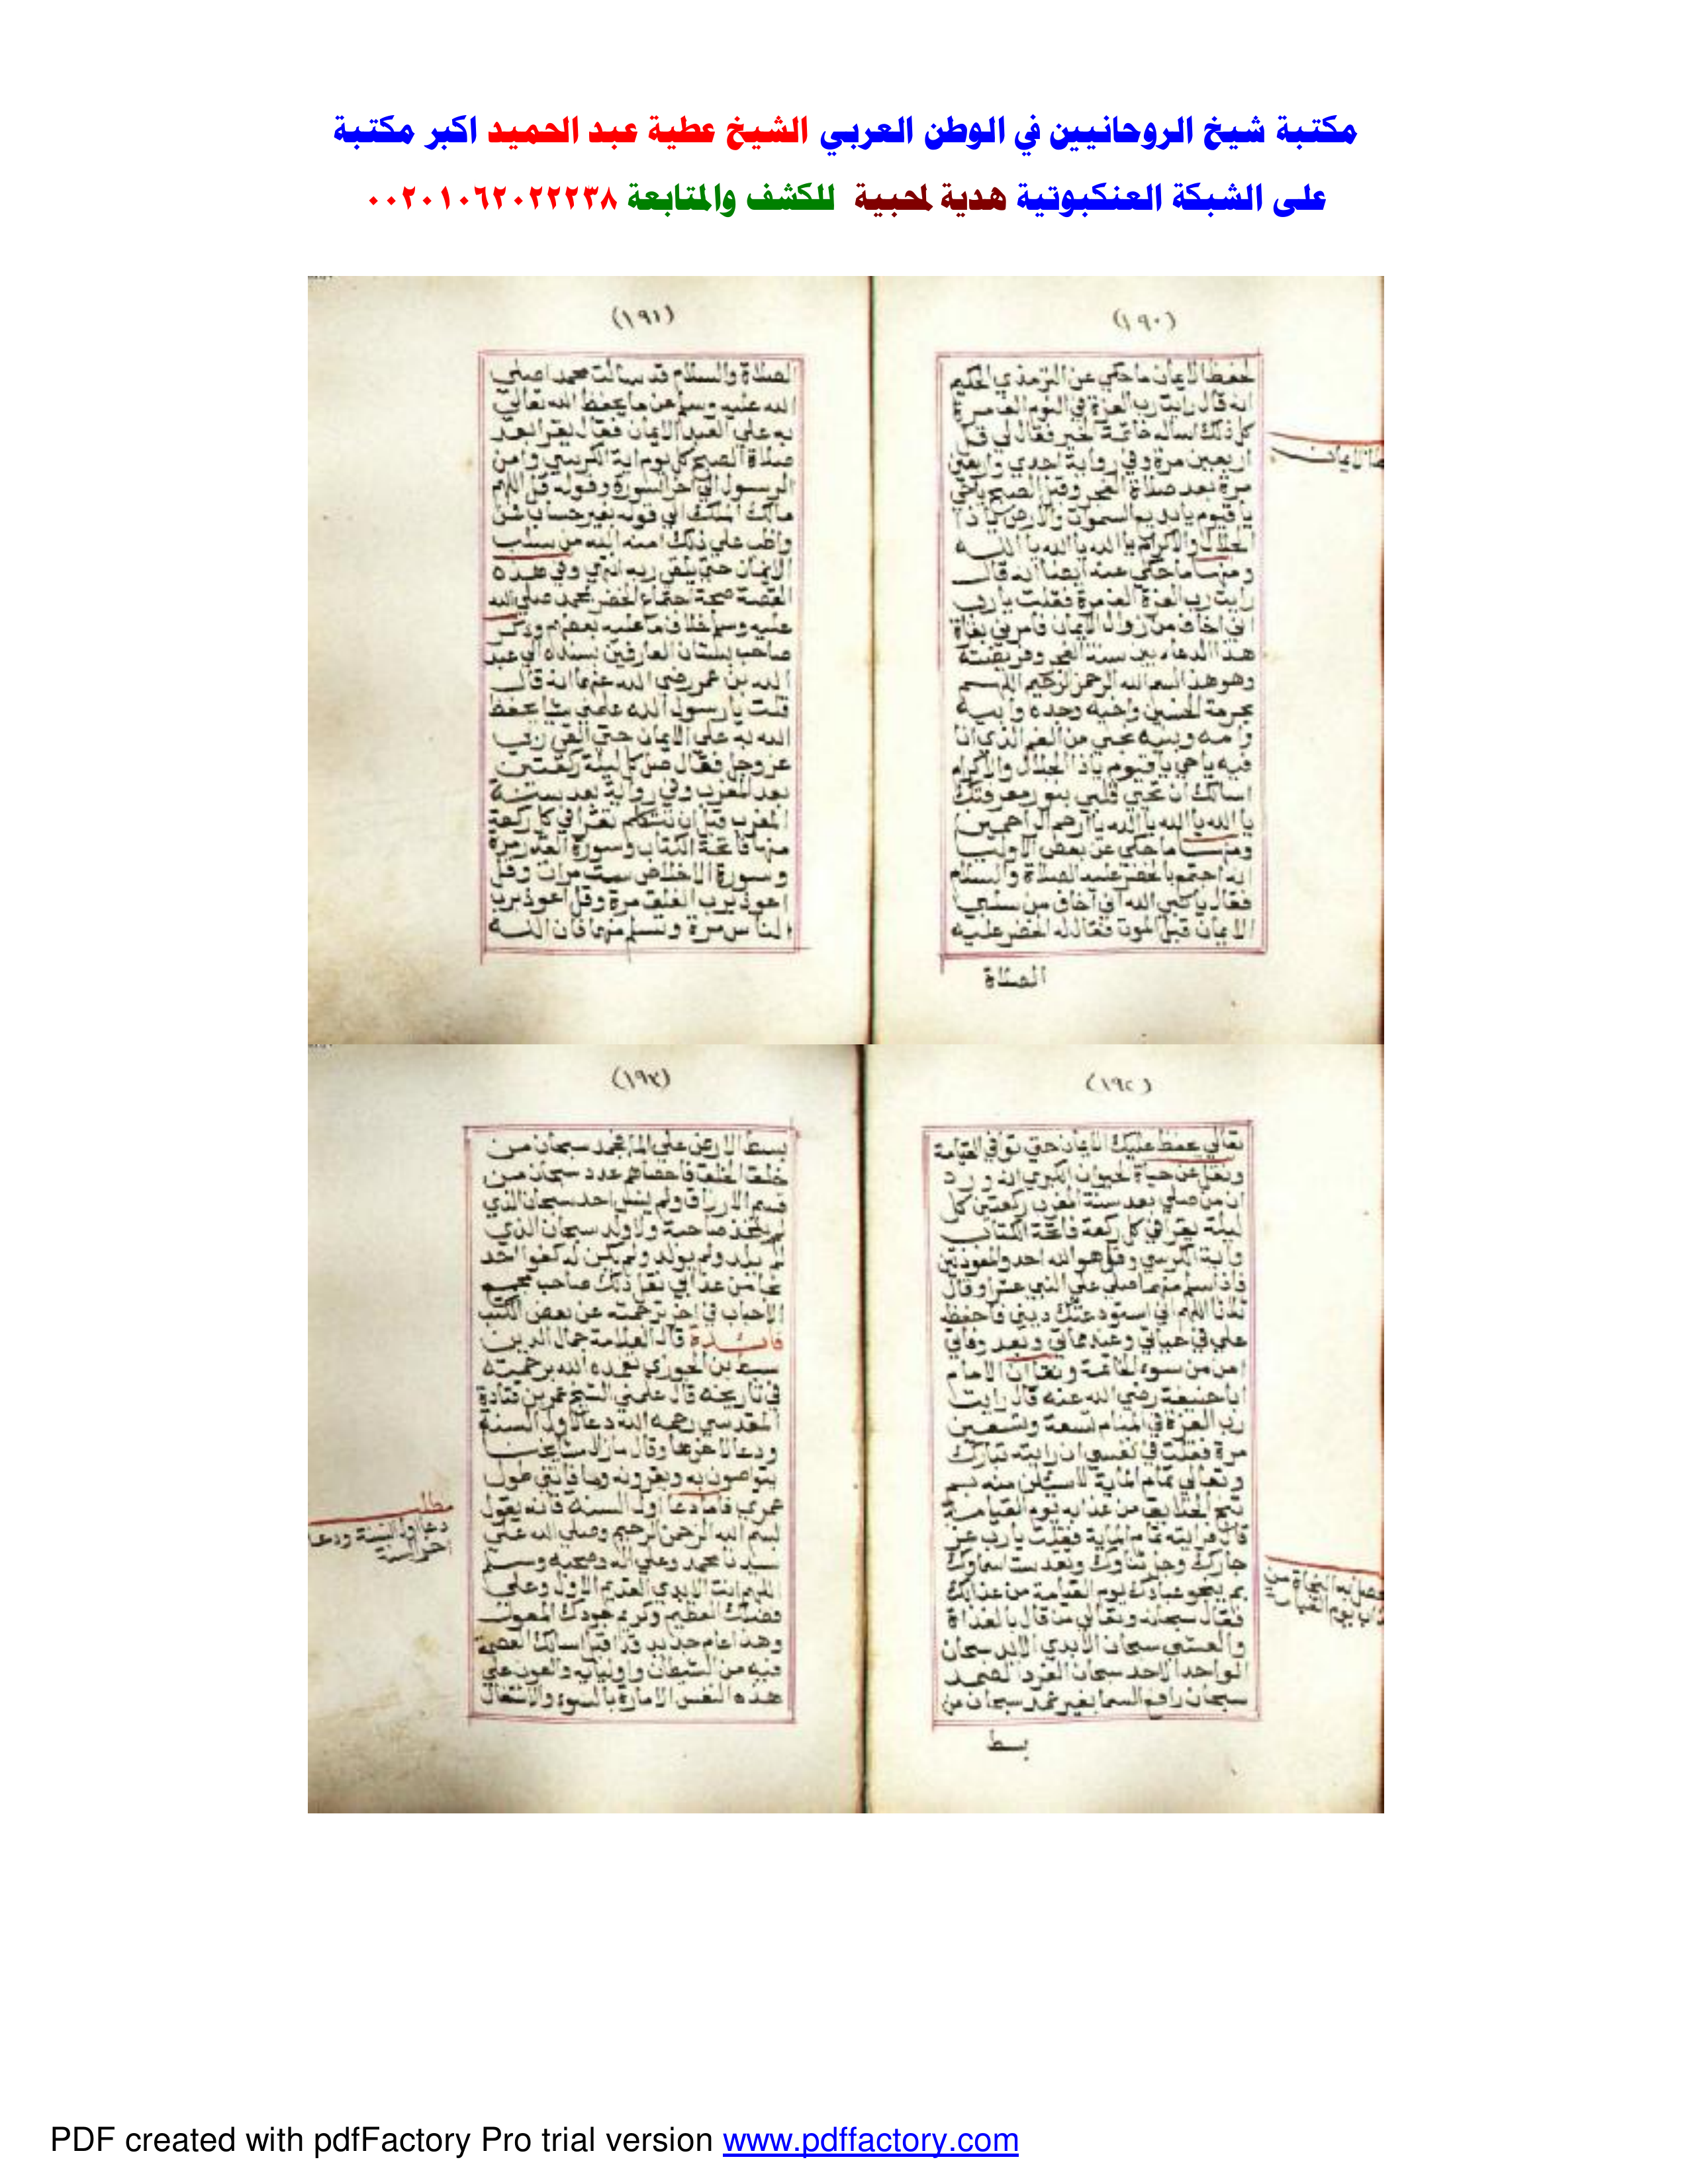 مكتبة شيخ الروحانيين في الوطن العربي الشيخ عطية عبد الحميد اكبر مكتبة
على الشبكة العنكبوتية هدية لمحبية للكشف والمتابعة ٠٠٢٠١٠٦٢٠٢٢٢٣٨
(١٩٠)
لحفظ الايمان ما حكي عن الترمذي الحكيم
انه قال رايت رب العزة في النوم الف مرة
كل ذلك اساله خاتمة الخير فقال لي قل
اربعين مرة وفي رواية احدي واربعين
مرة بعد صلاة الفجر وقبل الصبح يا حي
يا قيوم يا بديع السموات والارض يا ذا
الجلال والاكرام يا الله يا الله يا الله
ومنها ما حكي عنه ايضا انه قال
رايت رب العزة الف مرة فقلت يا رب
اني اخاف من زوال الايمان فامرني بقراة
هذا الدعاء بين سنة الفجر وفريضته
وهو هذا بسم الله الرحمن الرحيم اللهم
بحرمة الحسين واخيه وجده وابيه
وامه وبنيه نجني من الغم الذي انا
فيه يا حي يا قيوم يا ذا الجلال والاكرام
اسالك ان تحيي قلبي بنور معرفتك
يا الله يا الله يا الله يا ارحم الراحمين
ومنها ما حكي عن بعض الاوليا
انه اجتمع بالخضر عليه الصلاة والسلام
فقال يا نبي الله اني اخاف من سلب
الايمان قبل الموت فقال له الخضر عليه
الصلاة
(١٩١)
الصلاة والسلام قد سالت محمد اصلي
الله عليه وسلم عن ما يحفظ الله تعالي
به علي العبد الايمان فقال يقرا بعد
صلاة الصبح كل يوم اية الكرسي وامن
الرسول الي اخر السورة وقوله قل اللهم
مالك الملك الي قوله بغير حساب فمن
واظب علي ذلك امنه الله من سلب
الايمان حتي يلقي ربه انتهي وفي هذه
القصة صحة اجتماع الخضر بمحمد صلي الله
عليه وسلم خلاف ما عليه بعضهم وذكر
صاحب بستان العارفين بسنده الي عبد
الله بن عمر رضي الله عنهما انه قال
قلت يا رسول الله علمني شيا يحفظ
الله به علي الايمان حتي القي ربي
عز وجل فقال صل كل ليلة ركعتين
بعد المغرب وفي رواية بعد سنة
المغرب قبل ان تتكلم تقرا في كل ركعة
منها فاتحة الكتاب وسورة القدر مرة
وسورة الاخلاص ست مرات وقل
اعوذ برب الفلق مرة وقل اعوذ برب
الناس مرة وتسلم منهما فان الله
(١٩٢)
تعالي يحفظ عليك الايمان حتي توافي القيامة
ونقل عن حياة الحيوان الكبري انه ورد
ان من صلي بعد سنة المغرب ركعتين كل
ليلة يقرا في كل ركعة فاتحة الكتاب
واية الكرسي وقل هو الله احد والمعوذتين
فاذا سلم منهما صلي علي النبي عشرا وقال
ثلاثا اللهم اني استودعتك ديني فاحفظه
علي في حياتي وعند مماتي وبعد وفاتي
امن من سوء الخاتمة ونقل ان الامام
ابا حنيفة رضي الله عنه قال رايت
رب العزة في المنام تسعة وتسعين
مرة فقلت في نفسي ان رايته تبارك
وتعالي تمام الماية لاسئلن منه بم
تنجو الخلايق من عذابه يوم القيامة
قال فرايته تمام الماية فقلت يا رب عز
جارك وجل ثناؤك وتقدست اسماوك
بم ينجو عبادك يوم القيامة من عذابك
فقال سبحانه وتعالي من قال بالغداة
والعشي سبحان الابدي الابد سبحان
الواحد الاحد سبحان الفرد الصمد
سبحان رافع السما بغير عمد سبحان من
بسط
(١٩٣)
بسط الارض علي الما فجمد سبحان من
خلق الخلق فاحصاهم عدد سبحان من
قسم الارزاق ولم ينس احد سبحان الذي
لم يتخذ صاحبة ولا ولد سبحان الذي
لم يلد ولم يولد ولم يكن له كفوا احد
نجا من عذابي نقل ذلك صاحب
الاحباب في اخر ترجمته عن بعض الكتب
فائدة قال العلامة جمال الدين
سبط بن الجوزي تغمده الله برحمته
في تاريخه قال علمني الشيخ عمر بن قدامة
المقدسي رحمه الله دعا لاول السنة
ودعا لاخرها وقال ما زال مشايخنا
يتواصون به ويقرونه وما فاتني طول
عمري فاما دعا اول السنة فانه يقول
بسم الله الرحمن الرحيم وصلي الله علي
سيدنا محمد وعلي اله وصحبه وسلم
اللهم انت الابدي القديم الاول وعلي
فضلك العظيم وكرم جودك المعول
وهذا عام جديد قد اقبل اسالك العصمة
فيه من الشيطان واوليايه والعون علي
هذه النفس الامارة بالسوء والاشتغال
مطلب
دعا اول السنة ودعا
اخر السنة
PDF created with pdfFactory Pro trial version www.pdffactory.com